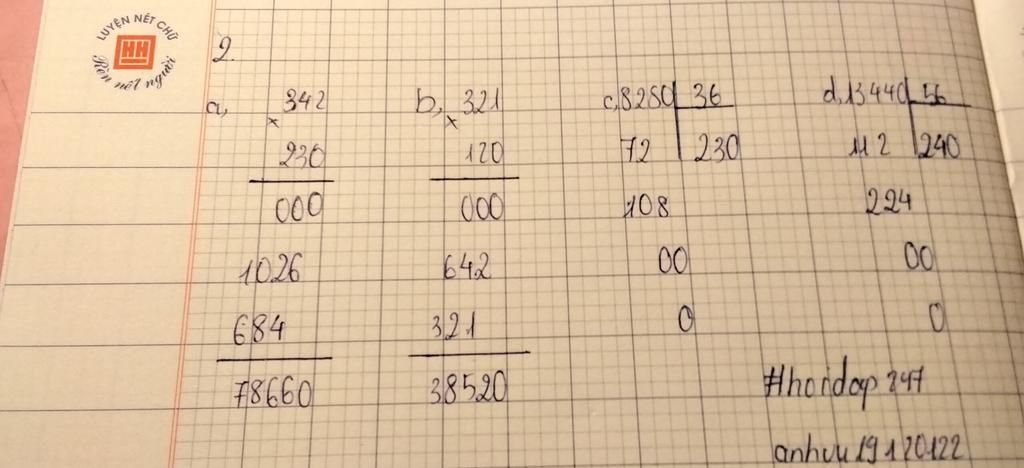 LUYỆN NÉT CHỮ
HH
Rèn nết người
2.
a, 342 b, 321 c, 8280 36 d, 13440 56
× ×
230 120 72 230 112 240
000 000 108 224
1026 642 00 00
684 321 0 0
78660 38520 #hoidap247
anhvu19120122